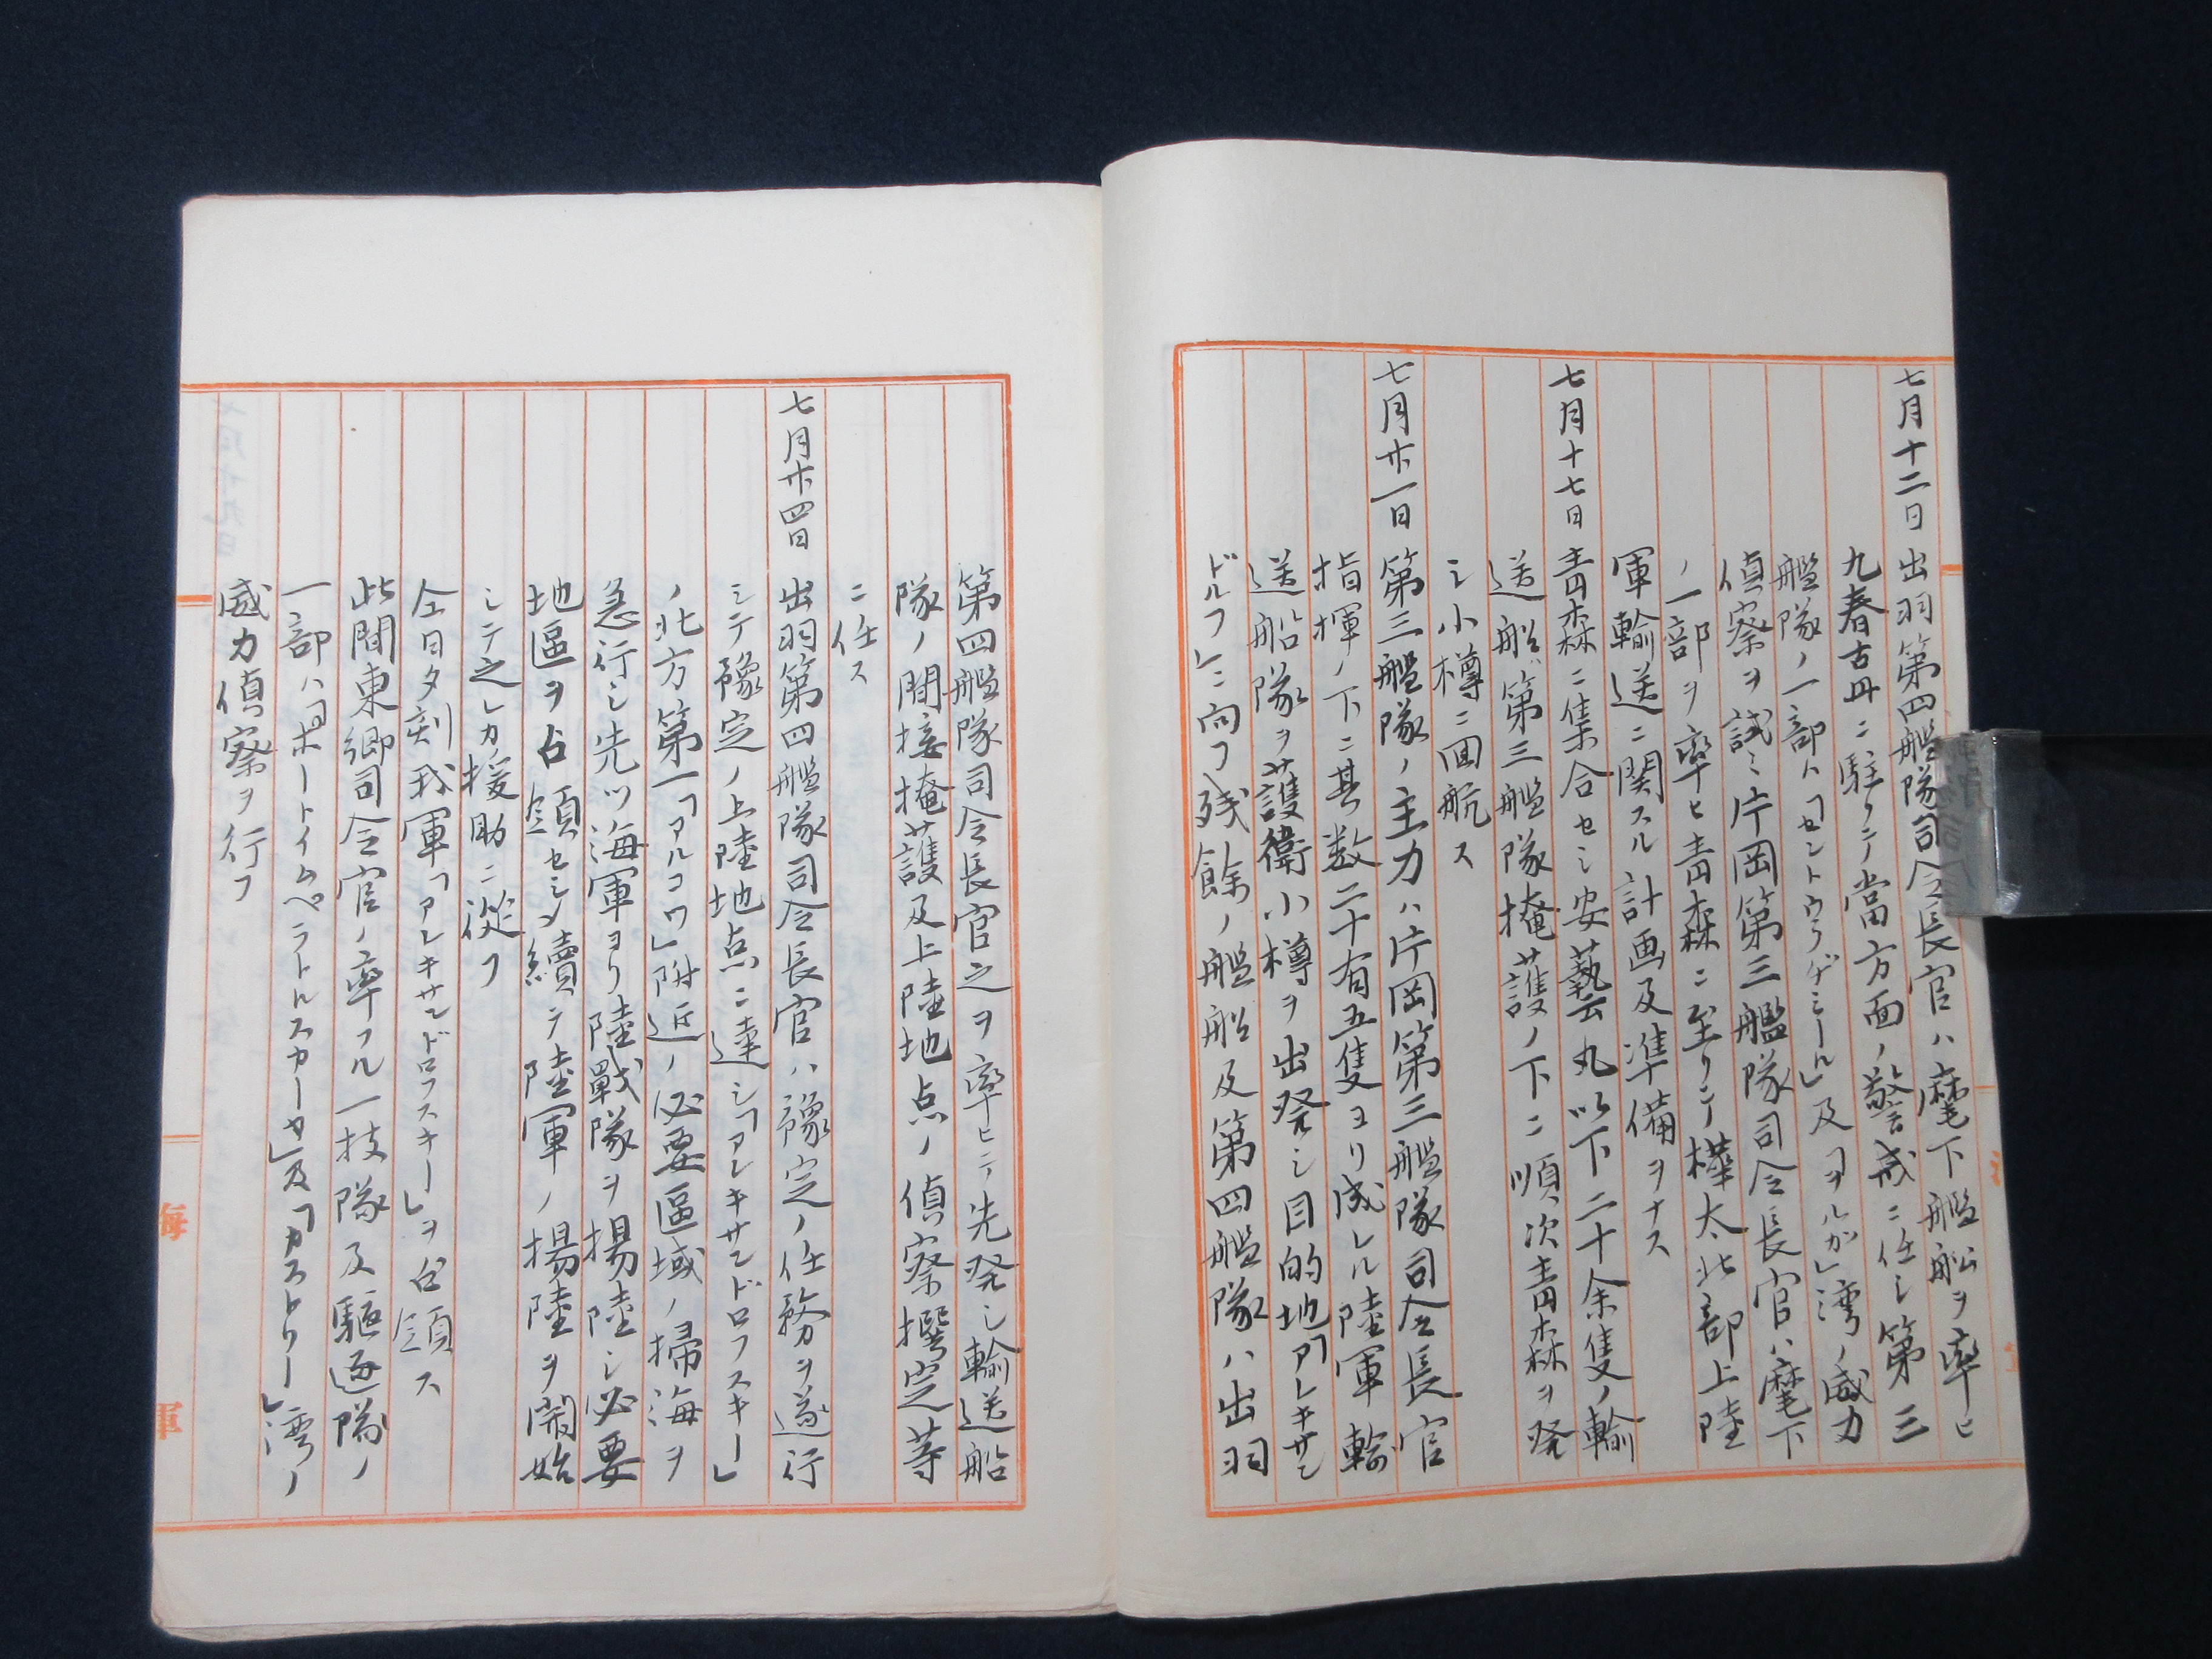 七月十二日 出羽第四艦隊司令長官ハ麾下艦船ヲ率ヒ
九春古丹ニ駐リテ當方面ノ警戒ニ任シ第三
艦隊ノ一部ハ「セントウラヂミール」及「ヲルガ」湾ノ威力
偵察ヲ試ミ片岡第三艦隊司令長官ハ麾下
ノ一部ヲ率ヒ青森ニ至リテ樺太北部上陸
軍輸送ニ関スル計画及準備ヲナス
七月十七日 青森ニ集合セシ安藝丸以下二十余隻ノ輸
送船ハ第三艦隊掩護ノ下ニ順次青森ヲ発
シ小樽ニ回航ス
七月廿一日 第三艦隊ノ主力ハ片岡第三艦隊司令長官
指揮ノ下ニ其数二十有五隻ヨリ成レル陸軍輸
送船隊ヲ護衛小樽ヲ出発シ目的地「アレキサン
ドルフ」ニ向フ残餘ノ艦船及第四艦隊ハ出羽
第四艦隊司令長官之ヲ率ヒテ先発シ輸送船
隊ノ間接掩護及上陸地点ノ偵察撰定等
ニ任ス
七月廿四日 出羽第四艦隊司令長官ハ豫定ノ任務ヲ遂行
シテ豫定ノ上陸地点ニ達シ「アレキサンドロフスキー」
ノ北方第一「アルコワ」附近ノ必要區域ノ掃海ヲ
急行シ先ツ海軍ヨリ陸戰隊ヲ揚陸シ必要
地區ヲ占領セシメ續テ陸軍ノ揚陸ヲ開始
シテ之レカ援助ニ従フ
仝日夕刻我軍「アレキサンドロフスキー」ヲ占領ス
此間東郷司令官ノ率フル一枝隊及驅逐隊ノ
一部ハ「ポートイムペラトルスカーヤ」及「カストリー」湾ノ
威力偵察ヲ行フ
海軍